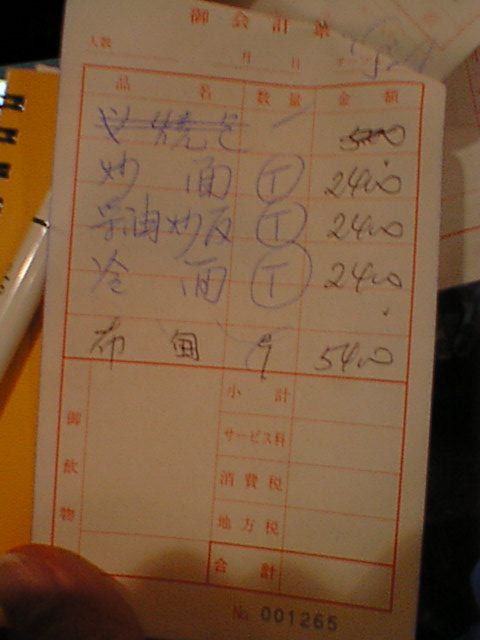 御会計票
人数 月 日
品 名 数 量 金 額
焼き 5400
妙 面 T 2400
油妙反 T 2400
冷 面 T 2400
布 5400
小 計
サービス料
御飲物
消費税
地方税
合 計
No 001265